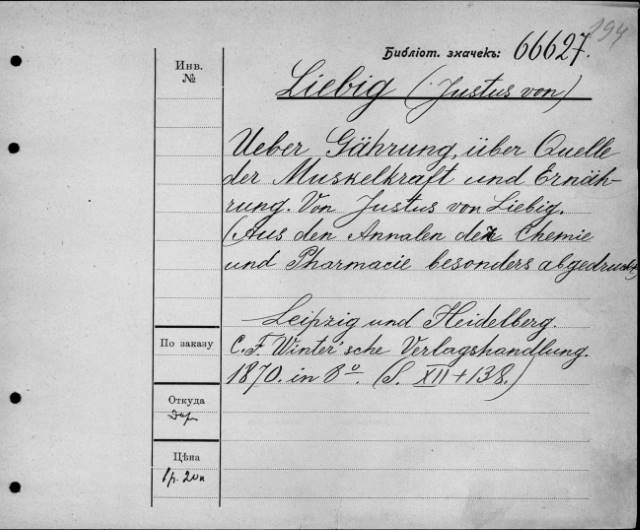 294
Библіот. значекъ: 66627.
Инв.
№
Liebig (Justus von)
Ueber Gährung, über Quelle
der Muskelkraft und Ernäh-
rung. Von Justus von Liebig.
(Aus den Annalen der Chemie
und Pharmacie besonders abgedruckt)
Leipzig und Heidelberg.
По заказу
C. F. Winter'sche Verlagshandlung.
1870. in 8º. (S. XII + 138.)
Откуда
Цѣна
1 р. 20 к